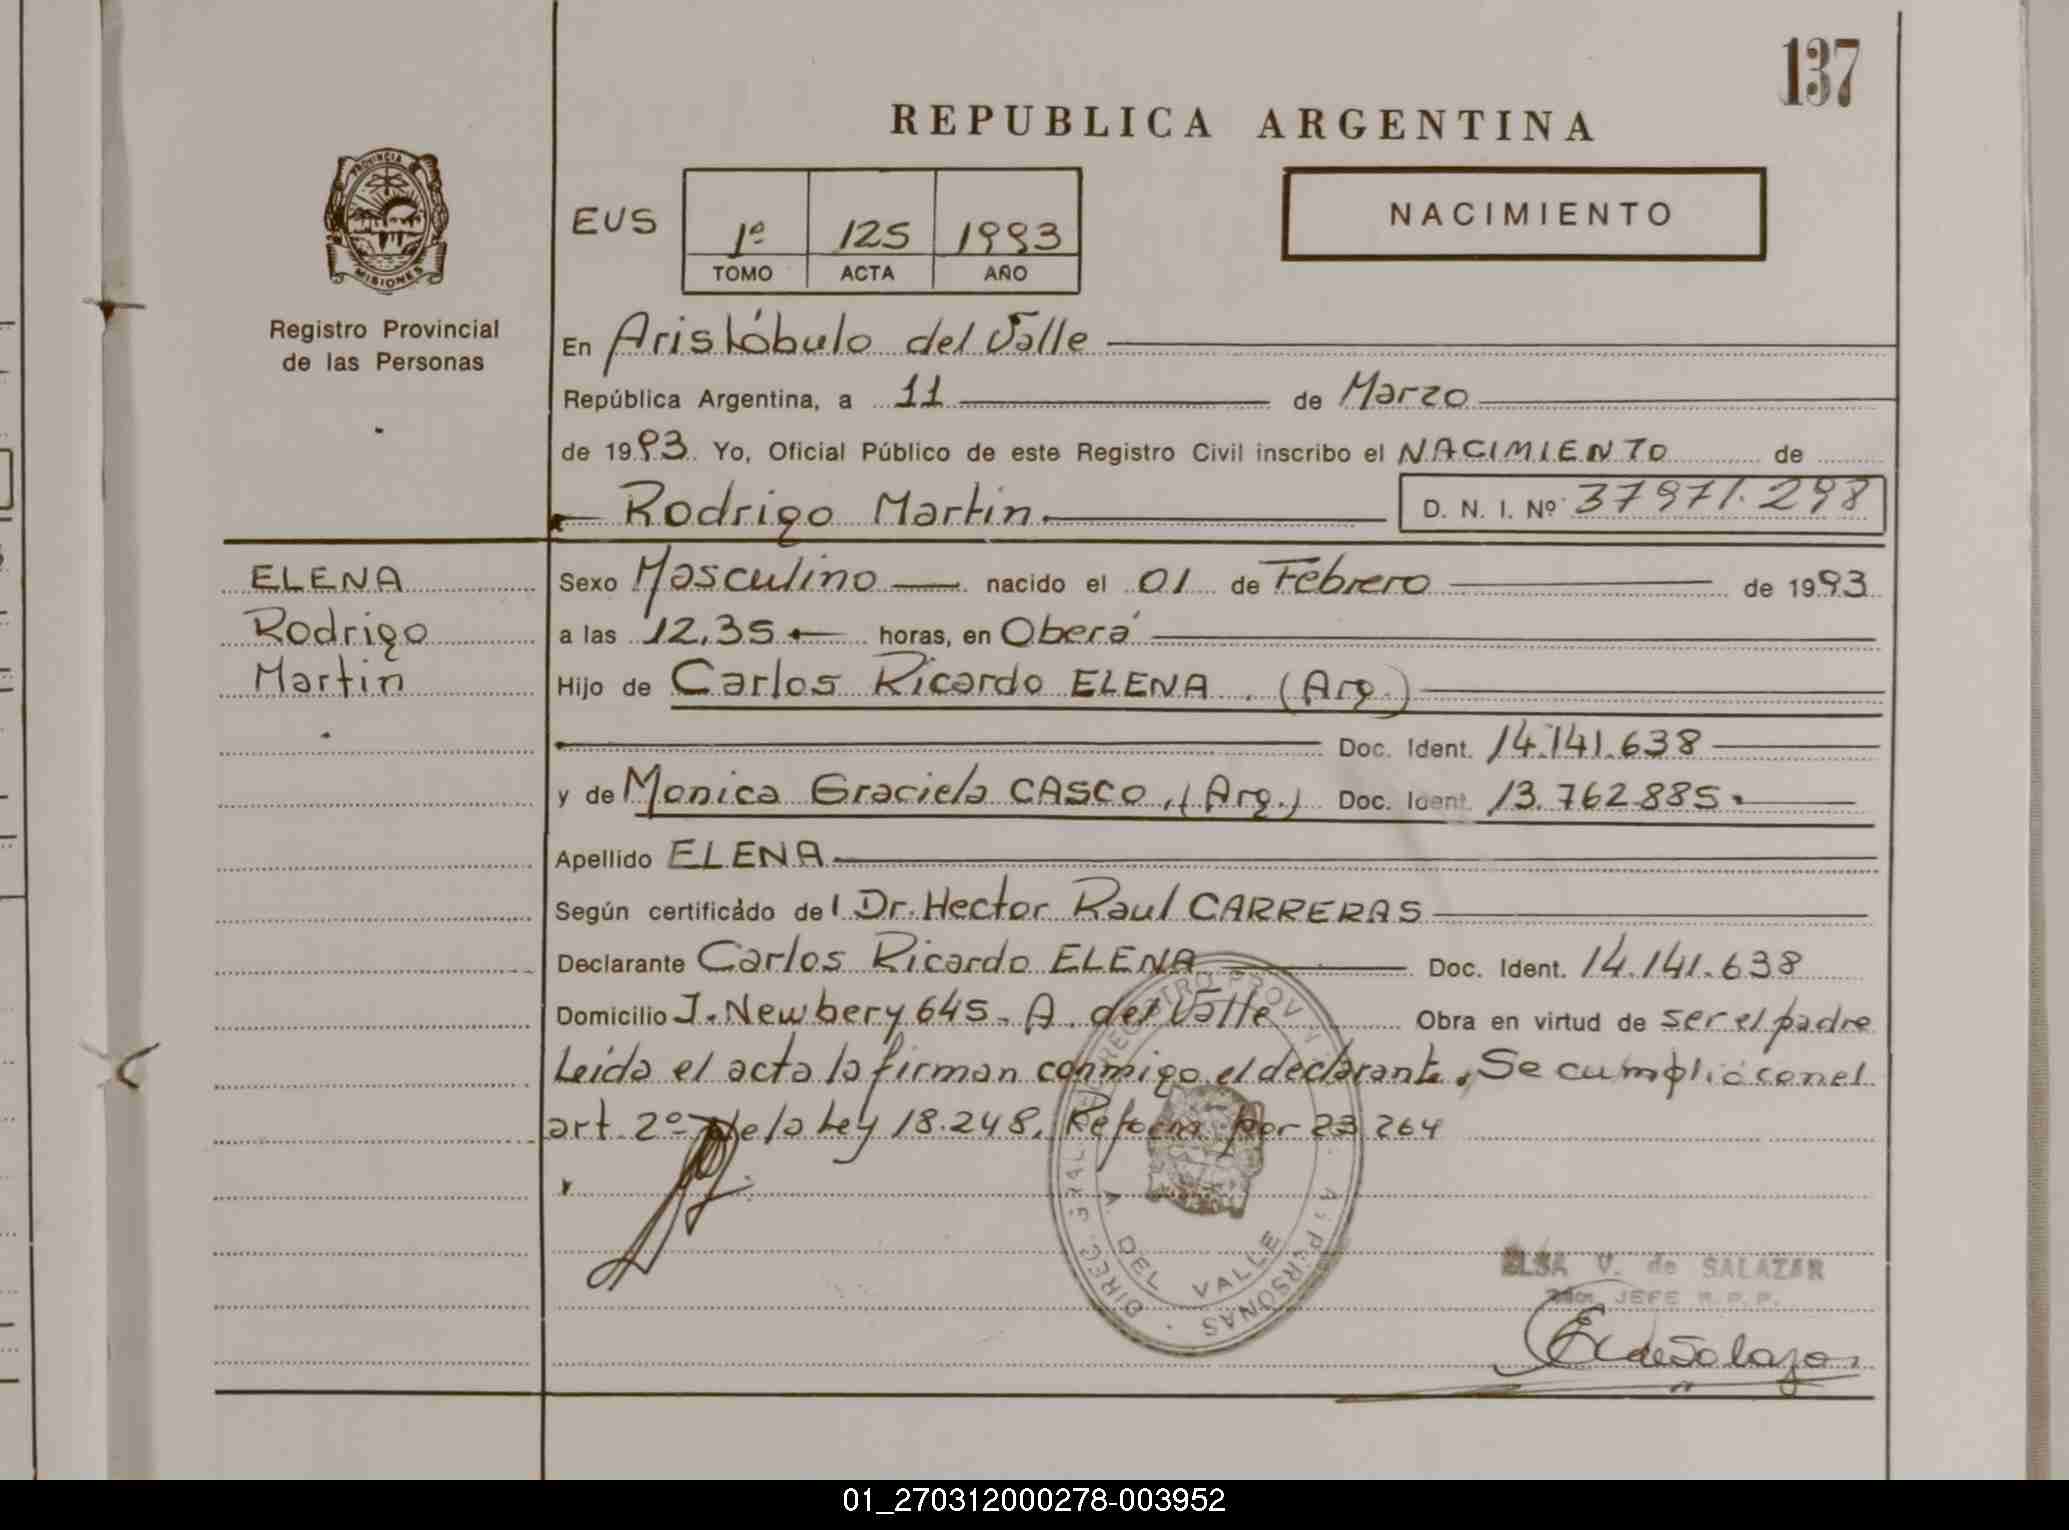 137
REPUBLICA ARGENTINA
PROVINCIA
MISIONES
Registro Provincial
de las Personas
EUS
1º 125 1993
TOMO ACTA AÑO
NACIMIENTO
En Aristóbulo del Valle
República Argentina, a 11 de Marzo
de 1993. Yo, Oficial Público de este Registro Civil inscribo el NACIMIENTO de
Rodrigo Martin D. N. I. Nº 37971.298
ELENA
Rodrigo
Martin
Sexo Masculino nacido el 01 de Febrero de 1993
a las 12,35 horas, en Oberá
Hijo de Carlos Ricardo ELENA. (Arg.)
Doc. Ident. 14.141.638
y de Monica Graciela CASCO, (Arg.) Doc. Ident. 13.762.885.
Apellido ELENA
Según certificado del Dr. Hector Raul CARRERAS
Declarante Carlos Ricardo ELENA Doc. Ident. 14.141.638
Domicilio J. Newbery 645- A. del Valle Obra en virtud de ser el padre
Leída el acta la firman conmigo el declarante. Se cumplió con el
art. 2º de la Ley 18.248. Reform por 23.264
DEL VALLE
PERSONAS
ELSA V. de SALAZAR
JEFE R.P.P.
01_270312000278-003952